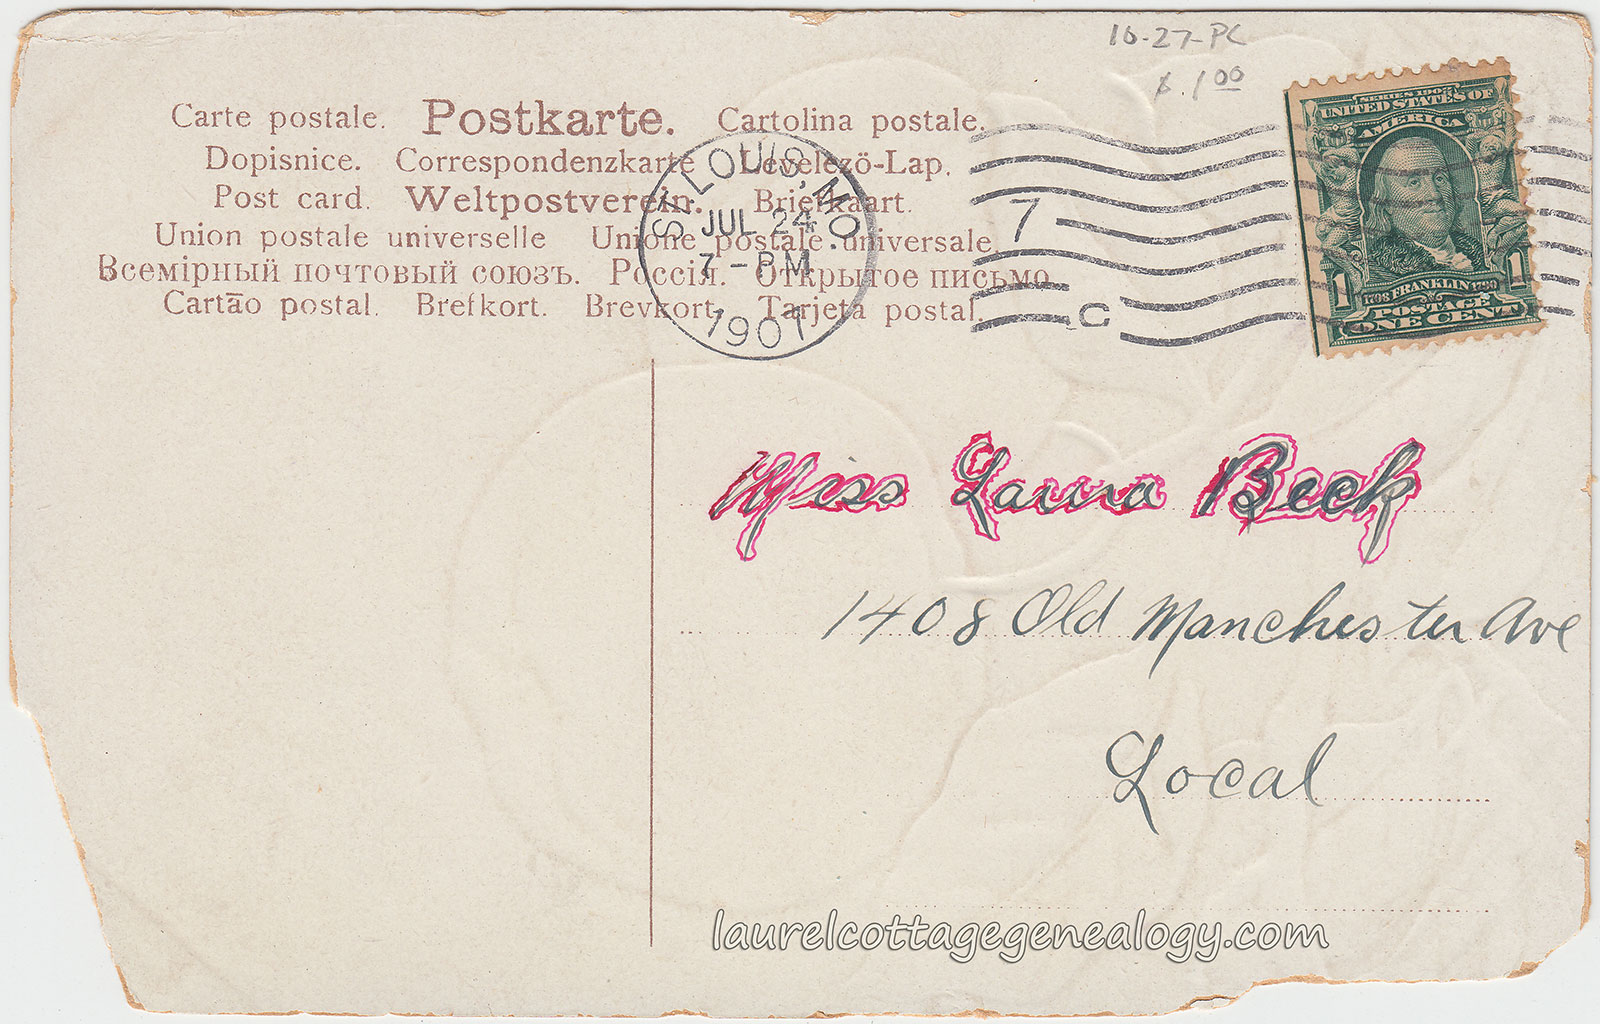 16-27-PC
$.100
Carte postale. Postkarte. Cartolina postale.
Dopisnice. Correspondenzkarte Levelezö-Lap.
Post card. Weltpostverein. Briefkaart.
Union postale universelle Unione postale universale.
Всемірный почтовый союзъ. Россія. Открытое письмо
Cartāo postal. Brefkort. Brevkort. Tarjeta postal.
ST. LOUIS, MO.
JUL 24
7-PM
1907
7
C
SERIES 1902
UNITED STATES OF
AMERICA
1706 FRANKLIN 1790
POSTAGE
1 ONE CENT 1
Miss Laura Beck
1408 Old Manchester Ave
Local
laurelcottagegenealogy.com